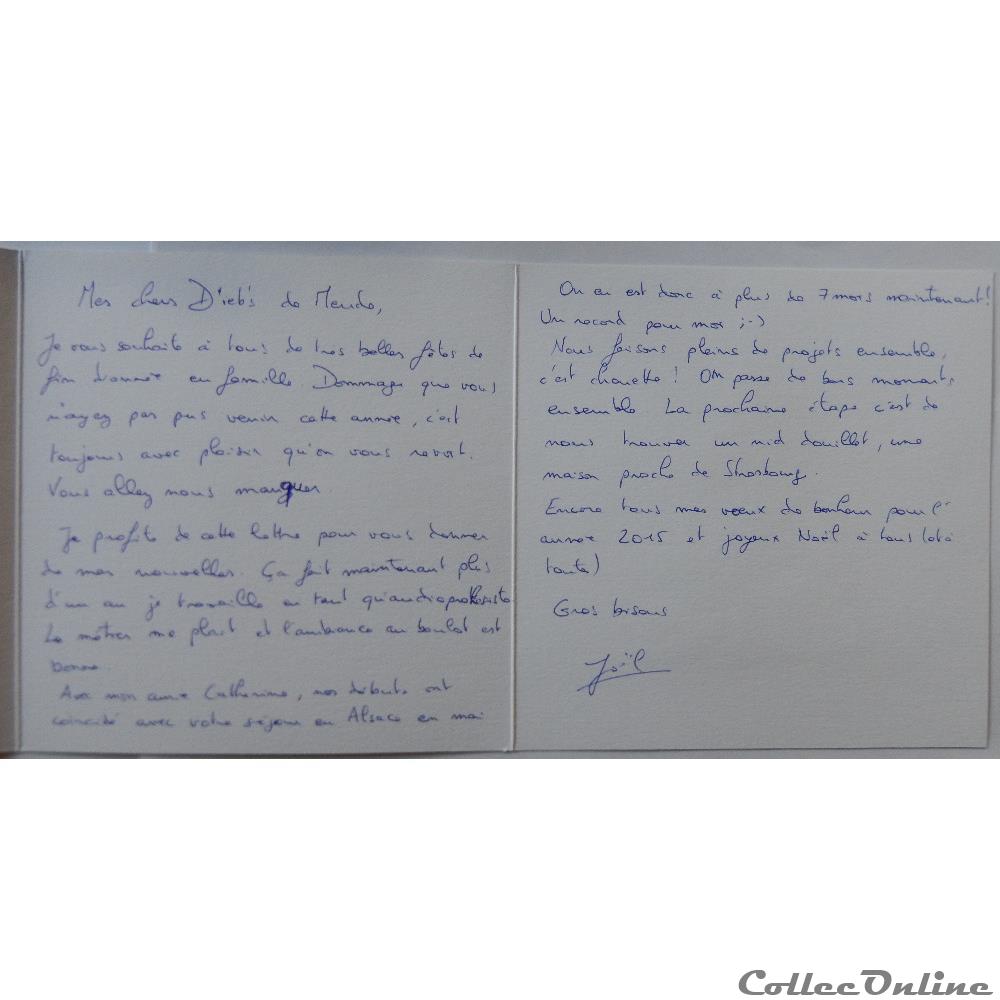 Mes chers D'ieb's de Mende,
Je vous souhaite à tous de très belles fêtes de
fin d'année en famille. Dommage que vous
n'ayez pas pus venir cette année, c'est
toujours avec plaisir qu'on vous revoit.
Vous allez nous manquer.
Je profite de cette lettre pour vous donner
de mes nouvelles. Ça fait maintenant plus
d'un an je travaille en tant qu'audioprothésiste
Le métier me plait et l'ambiance au boulot est
bonne.
Avec mon amie Catherine, nos débuts ont
coïncidé avec votre séjour en Alsace en mai
On en est donc à plus de 7 mois maintenant!
Un record pour moi ;-)
Nous faisons pleins de projets ensemble,
c'est chouette! On passe de bons moments
ensemble. La prochaine étape c'est de
nous trouver un nid douillet, une
maison proche de Strasbourg.
Encore tous mes voeux de bonheur pour l'
année 2015 et joyeux Noël à tous (et à
toute)
Gros bisous
Joël
CollecOnline